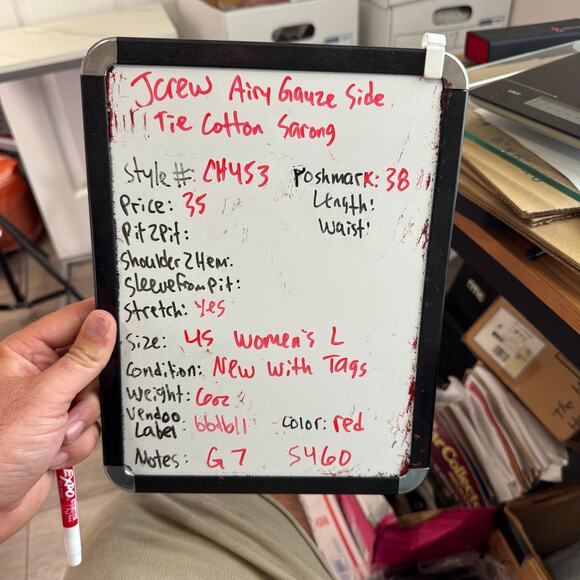 JCrew Airy Gauze Side
Tie Cotton Sarong
Style #: CH453 Poshmark: 38
Price: 35 Length:
Pit2Pit: Waist:
Shoulder2Hem:
SleeveFromPit:
Stretch: yes
Size: US Women's L
Condition: New With Tags
Weight: 6oz
Vendoo
Label: bbtb11 Color: red
Notes: G7 5460
EXPO